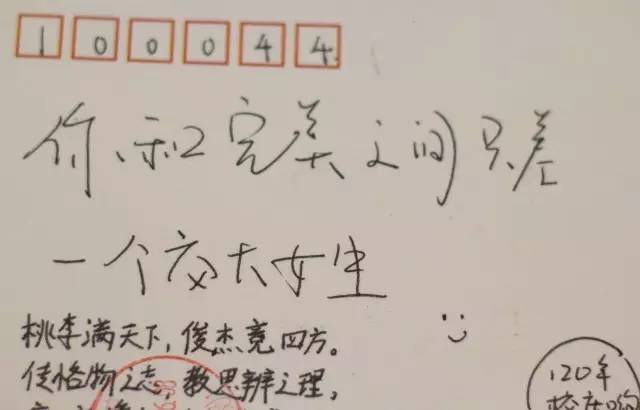 100044
你和完美之间只差
一个交大女生
桃李满天下，俊杰竟四方。
传格物之志，教思辨之理，
120年